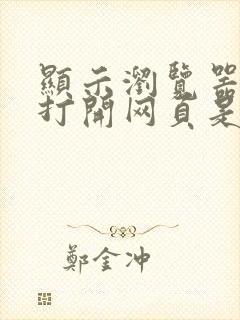 顯示瀏覽器
打開网頁是
鄭金冲